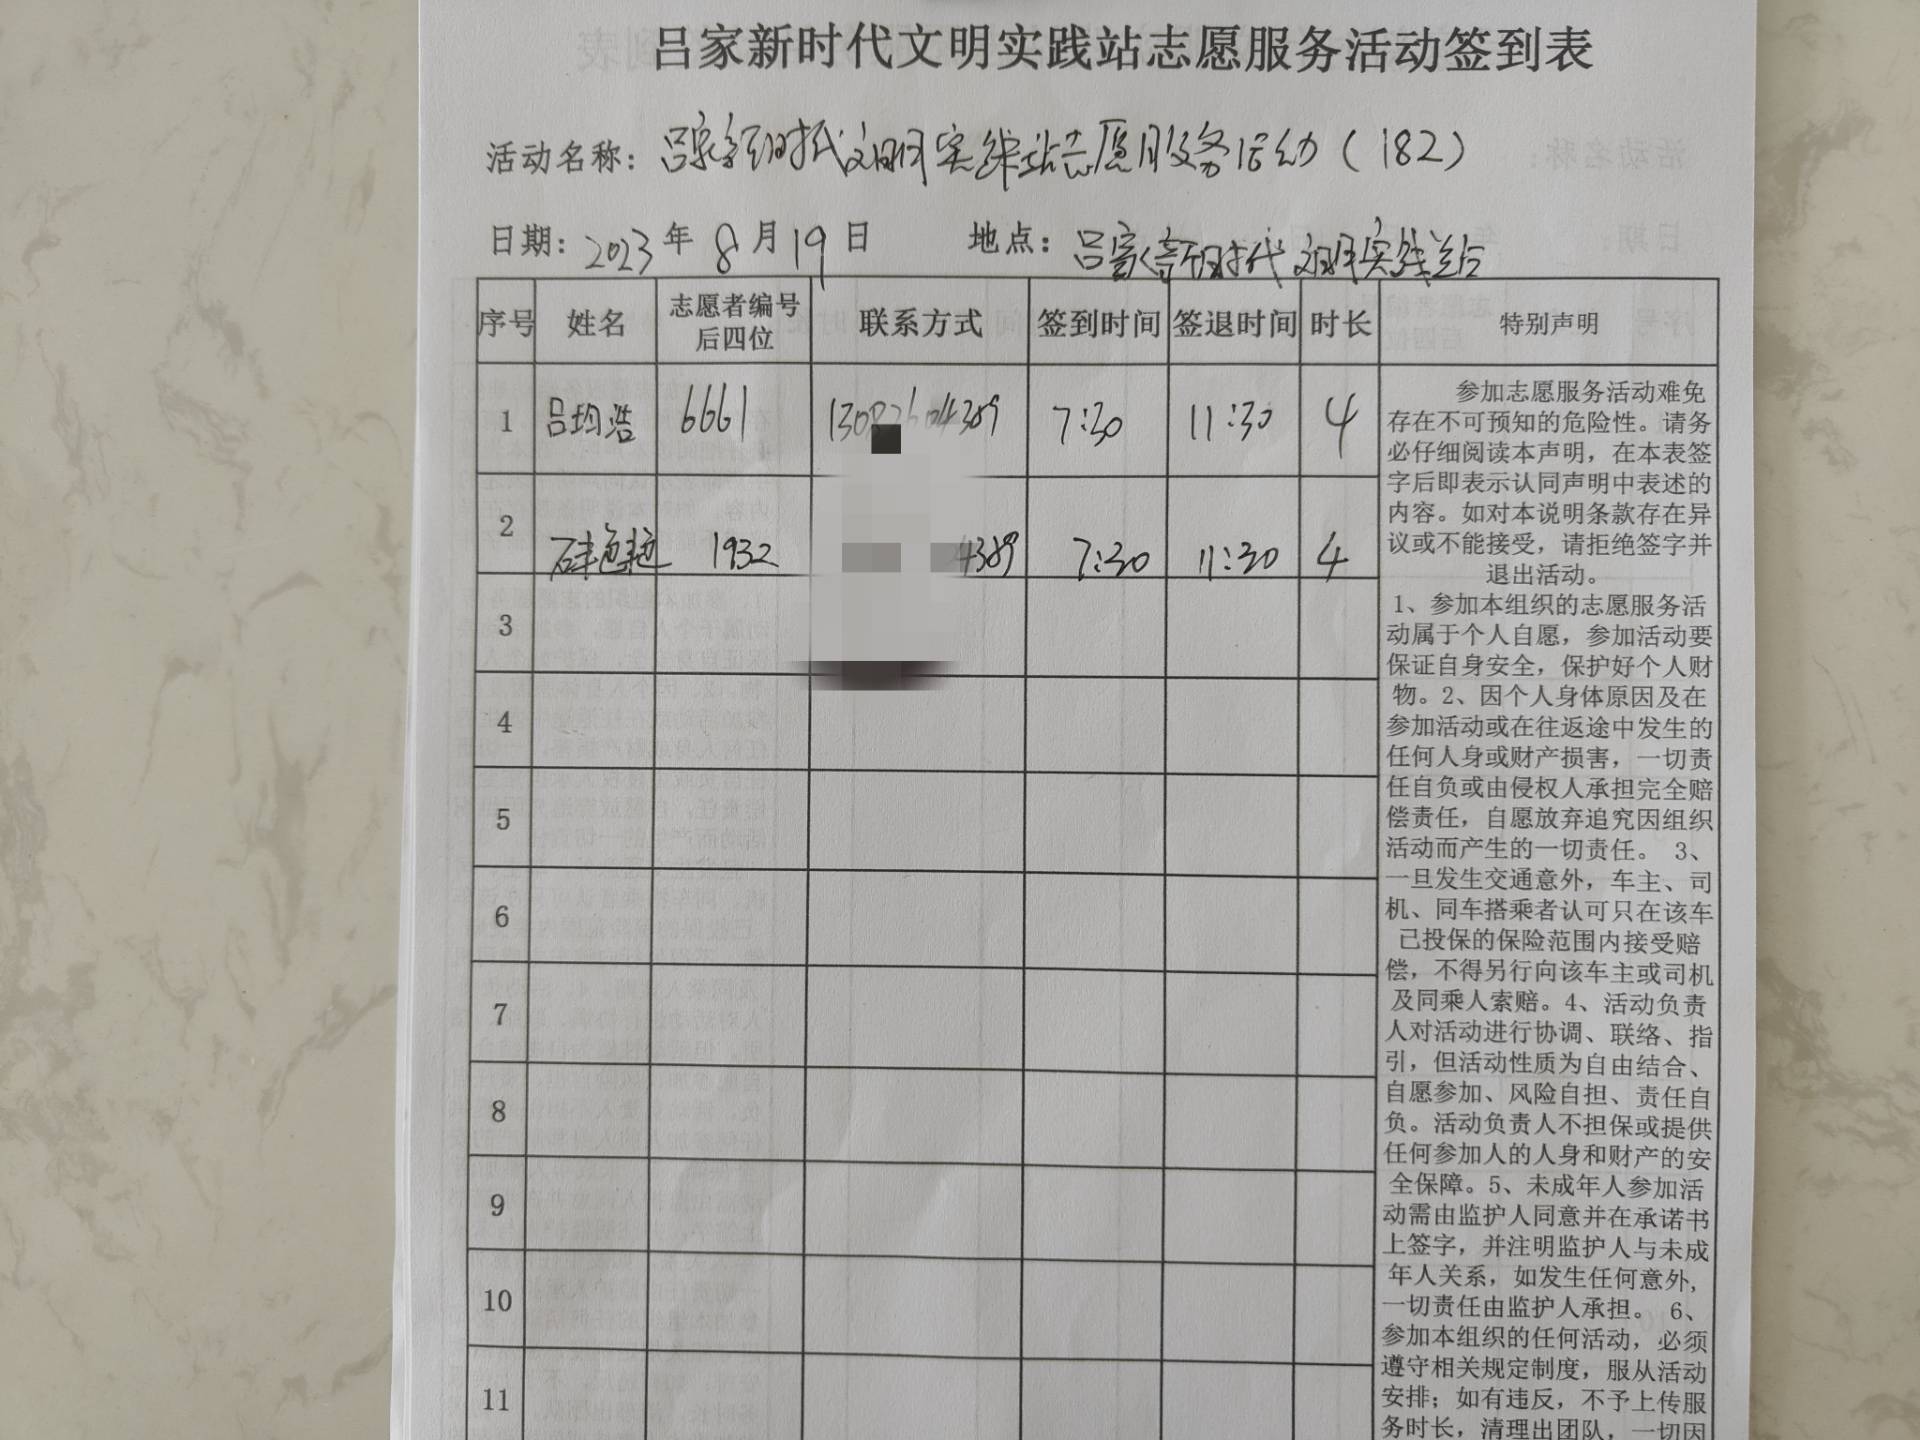 吕家新时代文明实践站志愿服务活动签到表
活动名称：吕家新时代文明实践站志愿服务活动（182）
日期：2023年8月19日 地点：吕家新时代文明实践站
序号 姓名 志愿者编号后四位 联系方式 签到时间 签退时间 时长 特别声明
1 吕均浩 6661 7:30 11:30 4
2 艳艳 1932 4389 7:30 11:30 4
3
4
5
6
7
8
9
10
11
参加志愿服务活动难免
存在不可预知的危险性。请务
必仔细阅读本声明，在本表签
字后即表示认同声明中表述的
内容。如对本说明条款存在异
议或不能接受，请拒绝签字并
退出活动。
1、参加本组织的志愿服务活
动属于个人自愿，参加活动要
保证自身安全，保护好个人财
物。2、因个人身体原因及在
参加活动或在往返途中发生的
任何人身或财产损害，一切责
任自负或由侵权人承担完全赔
偿责任，自愿放弃追究因组织
活动而产生的一切责任。 3、
一旦发生交通意外，车主、司
机、同车搭乘者认可只在该车
已投保的保险范围内接受赔
偿，不得另行向该车主或司机
及同乘人索赔。4、活动负责
人对活动进行协调、联络、指
引，但活动性质为自由结合、
自愿参加、风险自担、责任自
负。活动负责人不担保或提供
任何参加人的人身和财产的安
全保障。5、未成年人参加活
动需由监护人同意并在承诺书
上签字，并注明监护人与未成
年人关系，如发生任何意外，
一切责任由监护人承担。 6、
参加本组织的任何活动，必须
遵守相关规定制度，服从活动
安排；如有违反，不予上传服
务时长，清理出团队，一切因